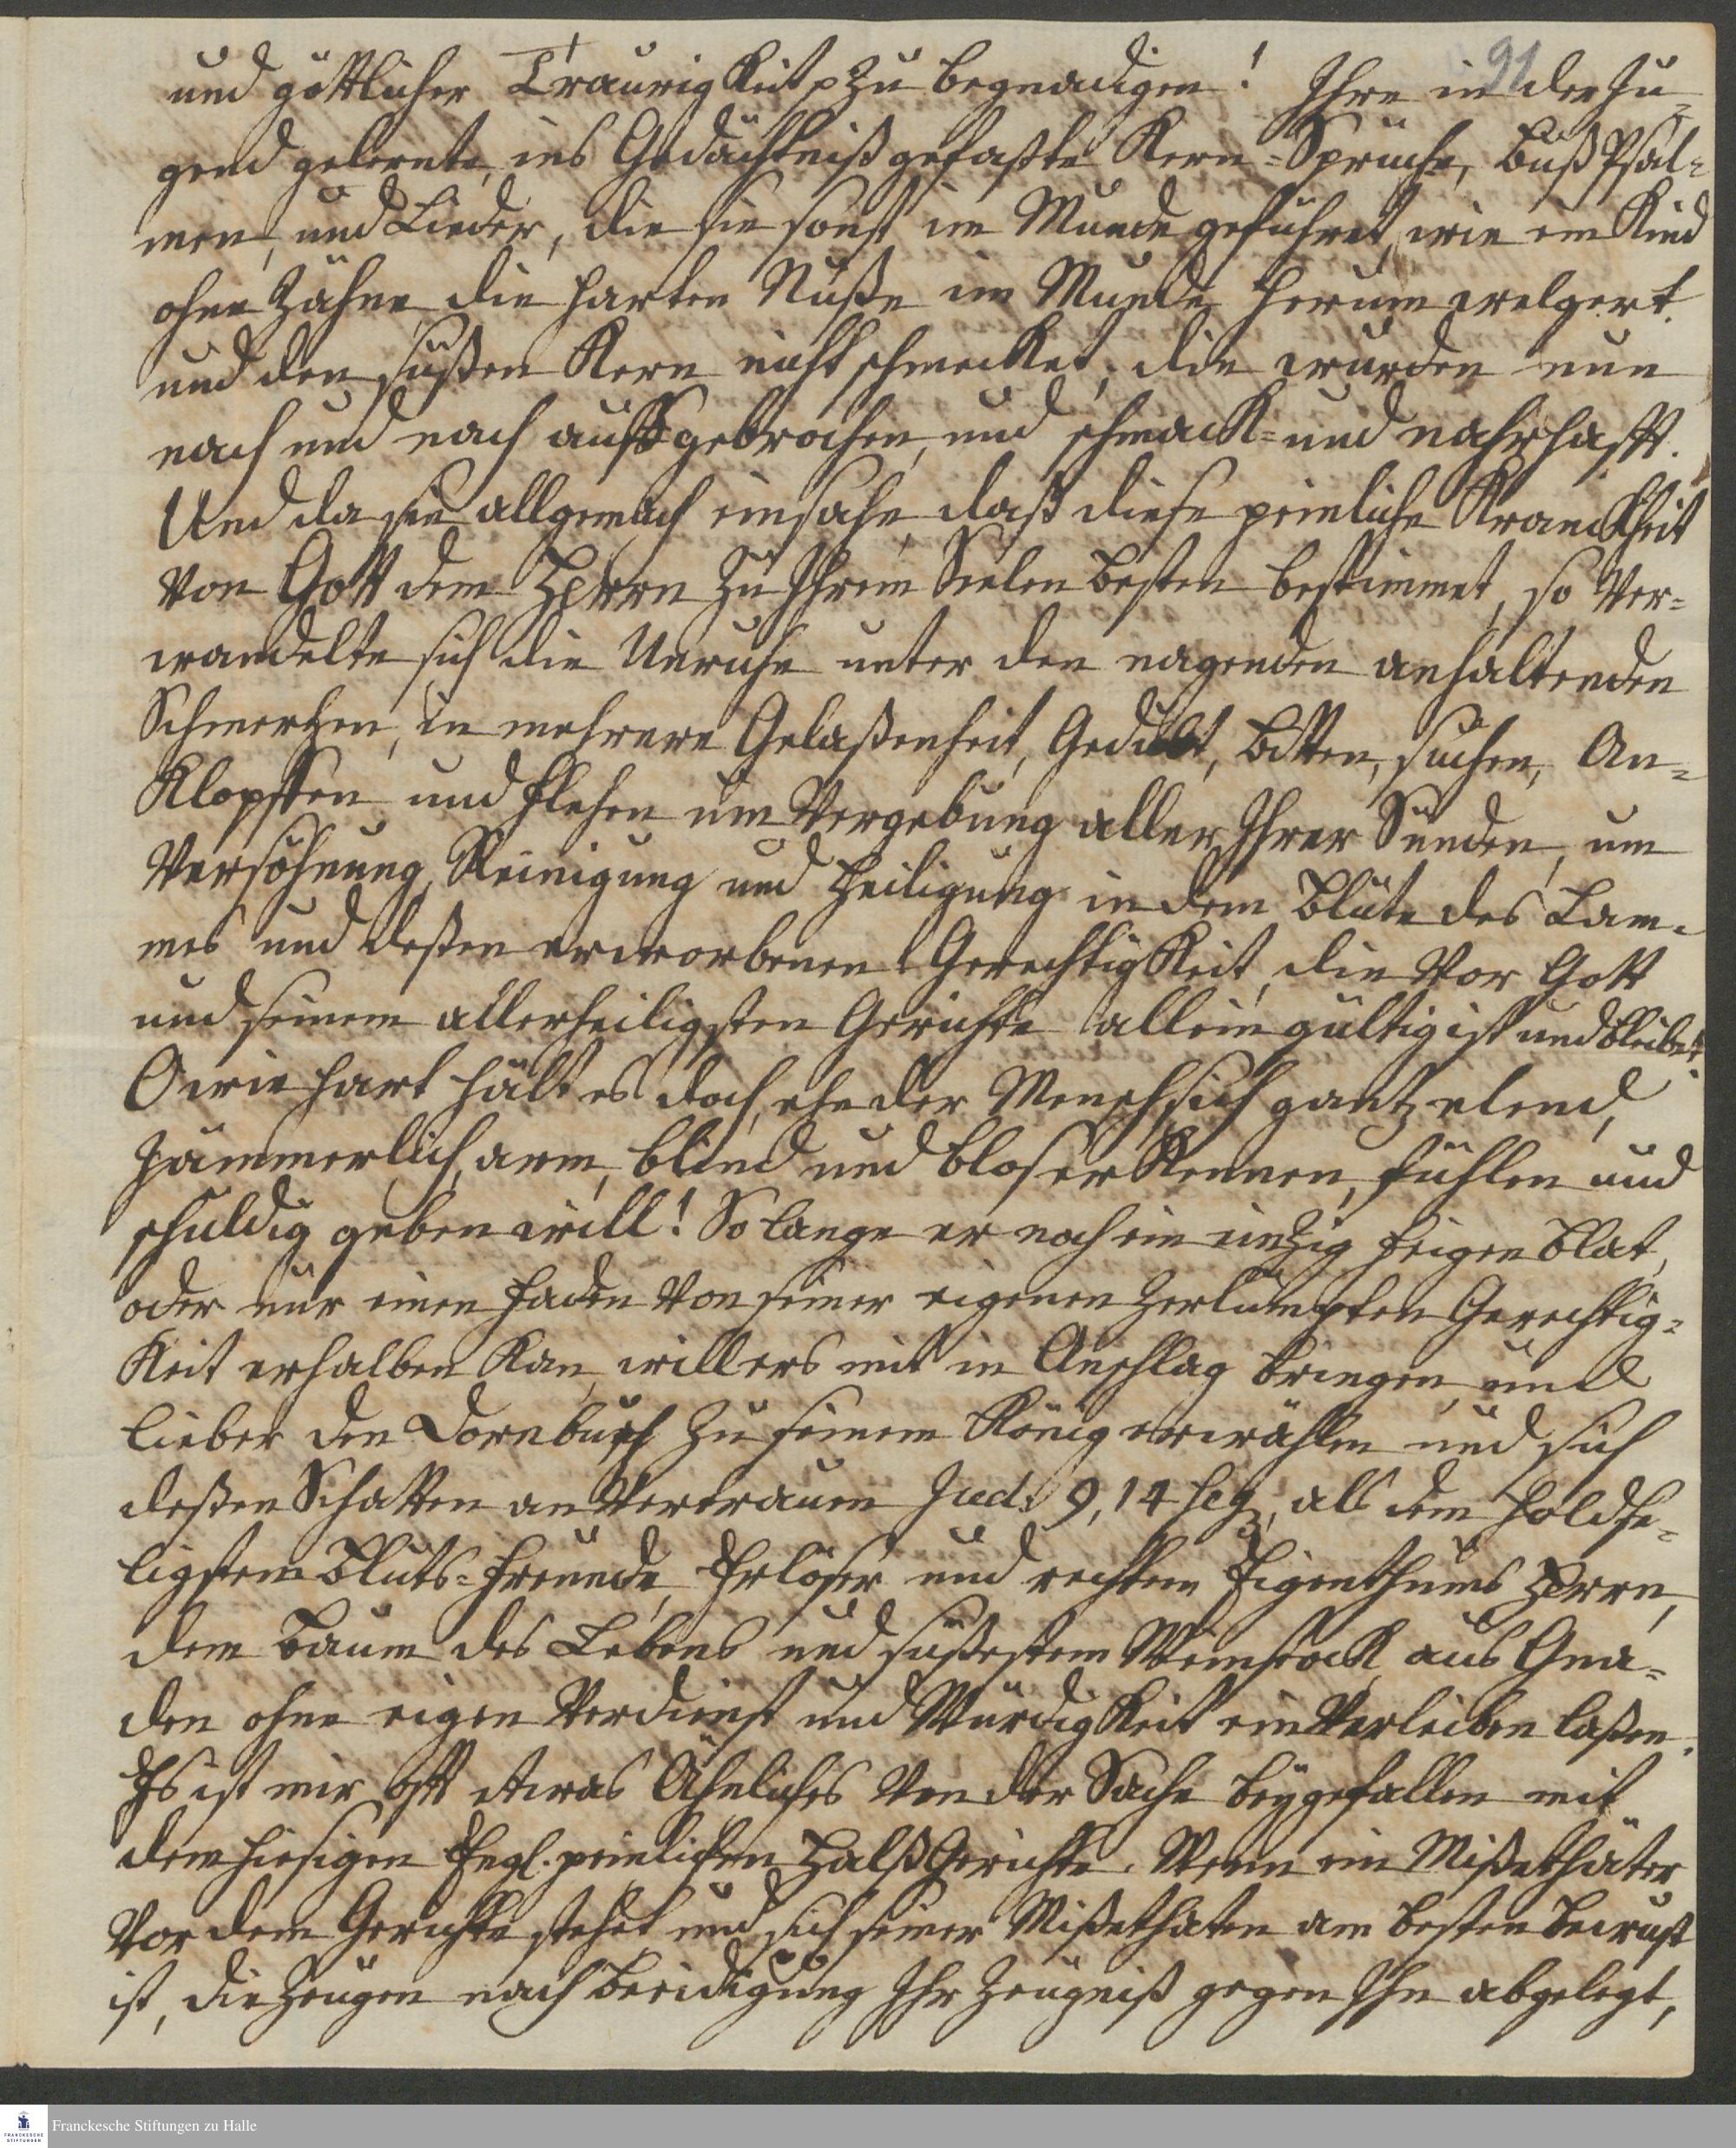 91
und göttlicher Traurigkeit p zu begnadigen! Ihre in der Ju-
gend gelernte, ins Gedächtniß gefaßte Kern-Sprüche, BußPsal-
men, und Lieder, die sie sonst im Munde geführet, wie ein Kind
ohne Zähne die harten Nüße im Munde herum welgert
und den süßen Kern nicht schmecket, die wurden nun
nach und nach auffgebrochen, und schmack- und nahrhafft.
Und da sie allgemach einsahe, daß diese peinliche Kranckheit
von Gott dem HErrn zu Ihrem Seelen Besten bestimmet, so ver-
wandelte sich die Unruhe unter den nagenden anhaltenden
Schmertzen, in mehrere Gelaßenheit, Gedult, Bitten, suchen, An-
klopffen und flehen um Vergebung aller Ihrer Sünden, um
Versöhnung, Reinigung und Heiligung in dem Blute des Lam-
mes und deßen erworbenen Gerechtigkeit, die vor Gott
und seinem allerheiligsten Gerichte allein gültig ist und bleibet.
O wie hart hält es doch, ehe der Mensch sich gantz elend,
jämmerlich, arm, blind und blos erkennen, fühlen und
schuldig geben will! So lange er noch ein eintzig feigen Blat,
oder nur einen Faden von seiner eigenen zerlumpten Gerechtig-
keit erhalben kan, will ers mit in Anschlag bringen, und
lieber den Dornbusch zu seinem König erwählen und sich
deßen Schatten anvertrauen Jud. 9, 14 seq, als dem holdse-
ligstem Bluts-Freunde, Erlöser und rechtem Eigenthums HErrn,
dem Baum des Lebens und süßestem Weinstock aus Gna-
den ohne eigen Verdienst und Würdigkeit einverleiben laßen.
Es ist mir offt etwas Ähnliches von der Sache beygefallen mit
dem hiesigen Engl. peinlichen HalßGerichte. Wenn ein Mißethäter
vor dem Gerichte stehet und sich seiner Mißethaten am besten bewust
ist, die Zeugen nach Beeidigung Ihr Zeugniß gegen Ihn abgelegt,
FRANCKESCHE
STIFTUNGEN
Franckesche Stiftungen zu Halle